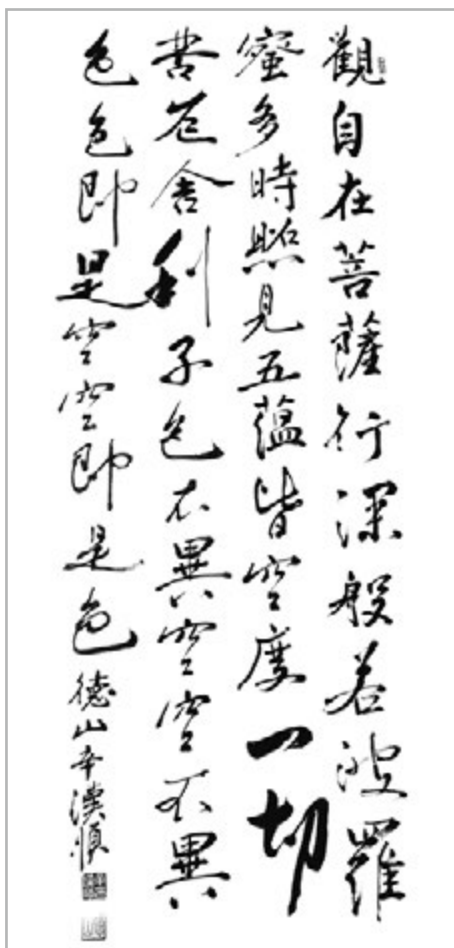 觀自在菩薩行深般若波羅
蜜多時照見五蘊皆空度一切
苦厄舍利子色不異空空不異
色色卽是空空卽是色 德山辛漢順